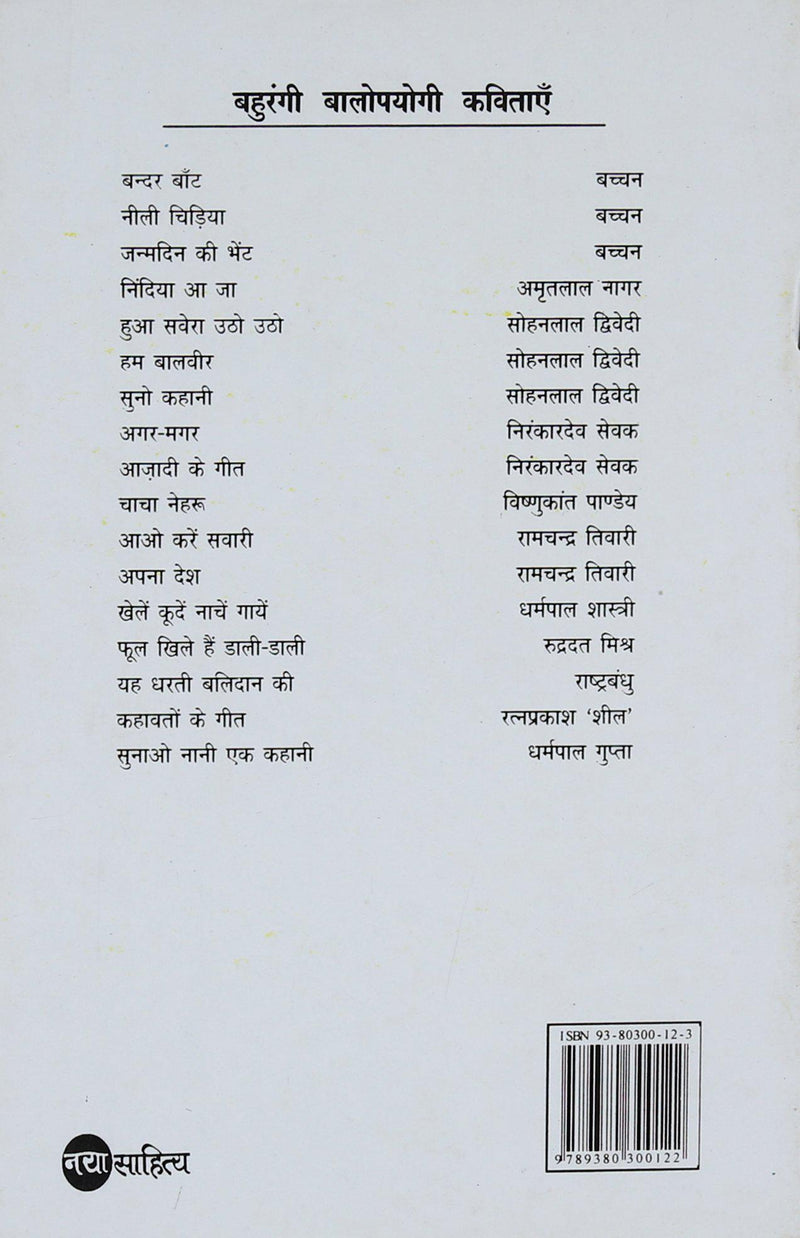 बहुरंगी बालोपयोगी कविताएँ
बन्दर बाँट बच्चन
नीली चिड़िया बच्चन
जन्मदिन की भेंट बच्चन
निंदिया आ जा अमृतलाल नागर
हुआ सवेरा उठो उठो सोहनलाल द्विवेदी
हम बालवीर सोहनलाल द्विवेदी
सुनो कहानी सोहनलाल द्विवेदी
अगर-मगर निरंकारदेव सेवक
आज़ादी के गीत निरंकारदेव सेवक
चाचा नेहरू विष्णुकांत पाण्डेय
आओ करें सवारी रामचन्द्र तिवारी
अपना देश रामचन्द्र तिवारी
खेलें कूदें नाचें गायें धर्मपाल शास्त्री
फूल खिले हैं डाली-डाली रुद्रदत मिश्र
यह धरती बलिदान की राष्ट्रबंधु
कहावतों के गीत रत्नप्रकाश ‘शील’
सुनाओ नानी एक कहानी धर्मपाल गुप्ता
ISBN 93-80300-12-3
9 789380 300122
नया साहित्य